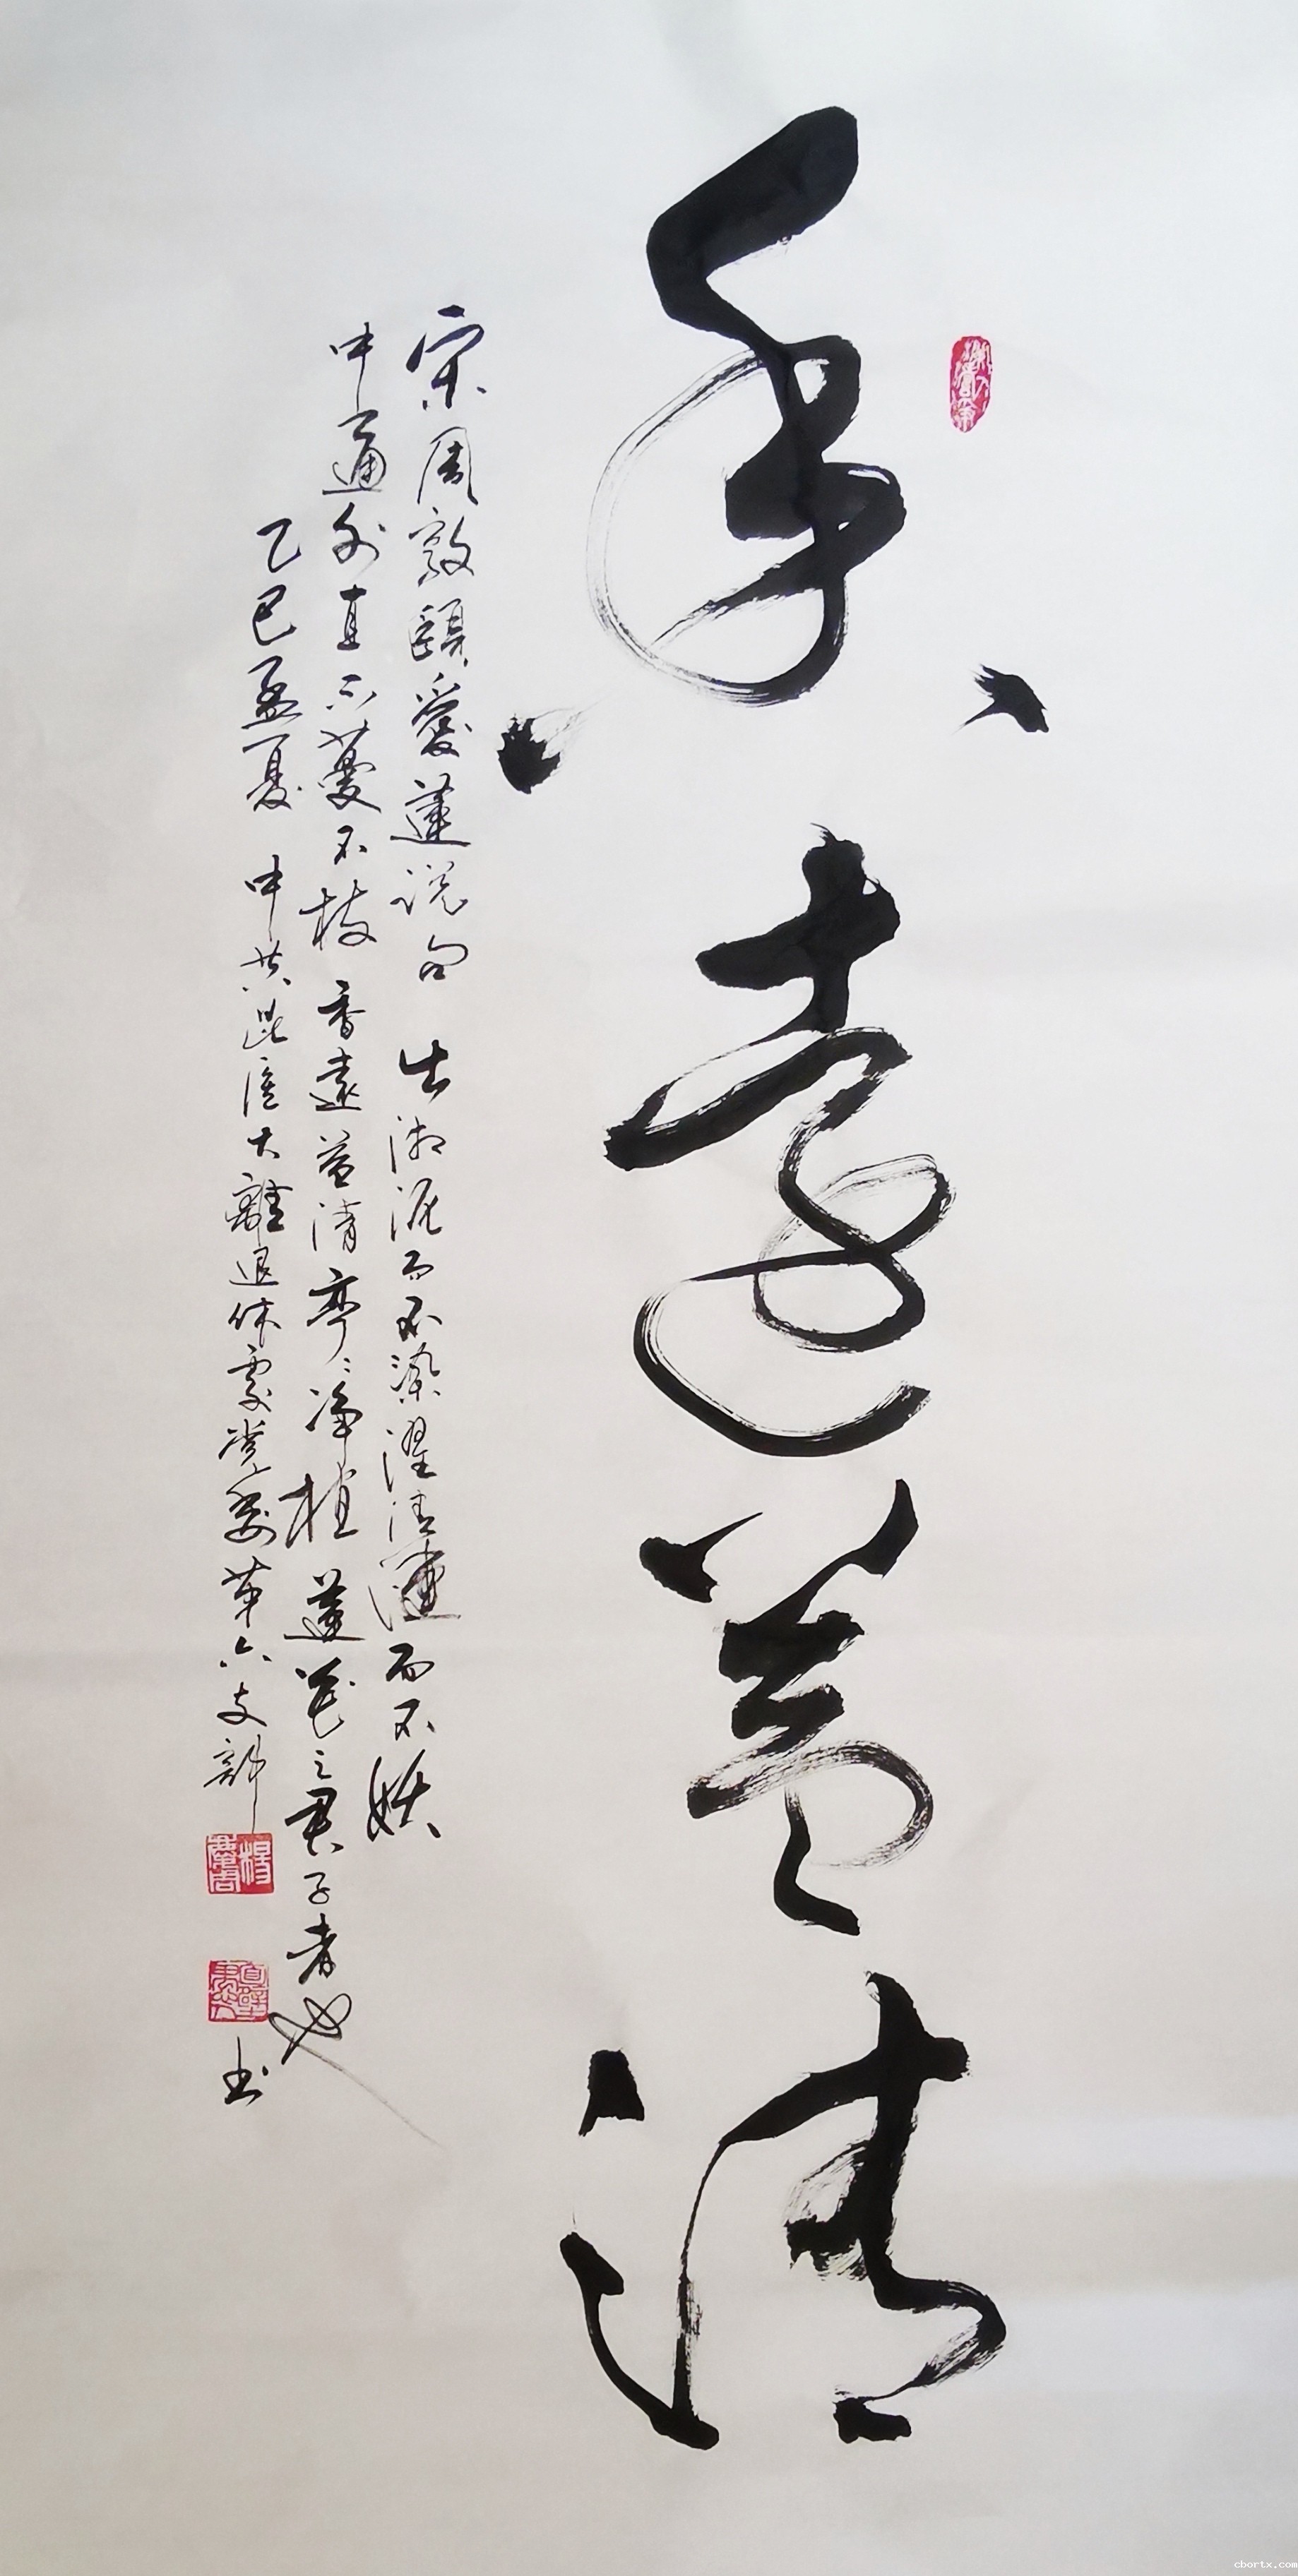 香遠益清
宋周敦頤愛蓮說句 出淤泥而不染濯清漣而不妖
中通外直不蔓不枝 香遠益清亭亭净植 蓮花之君子者也
乙巳孟夏 中共昆医大離退休處党委第六支部
书
cbortx.com